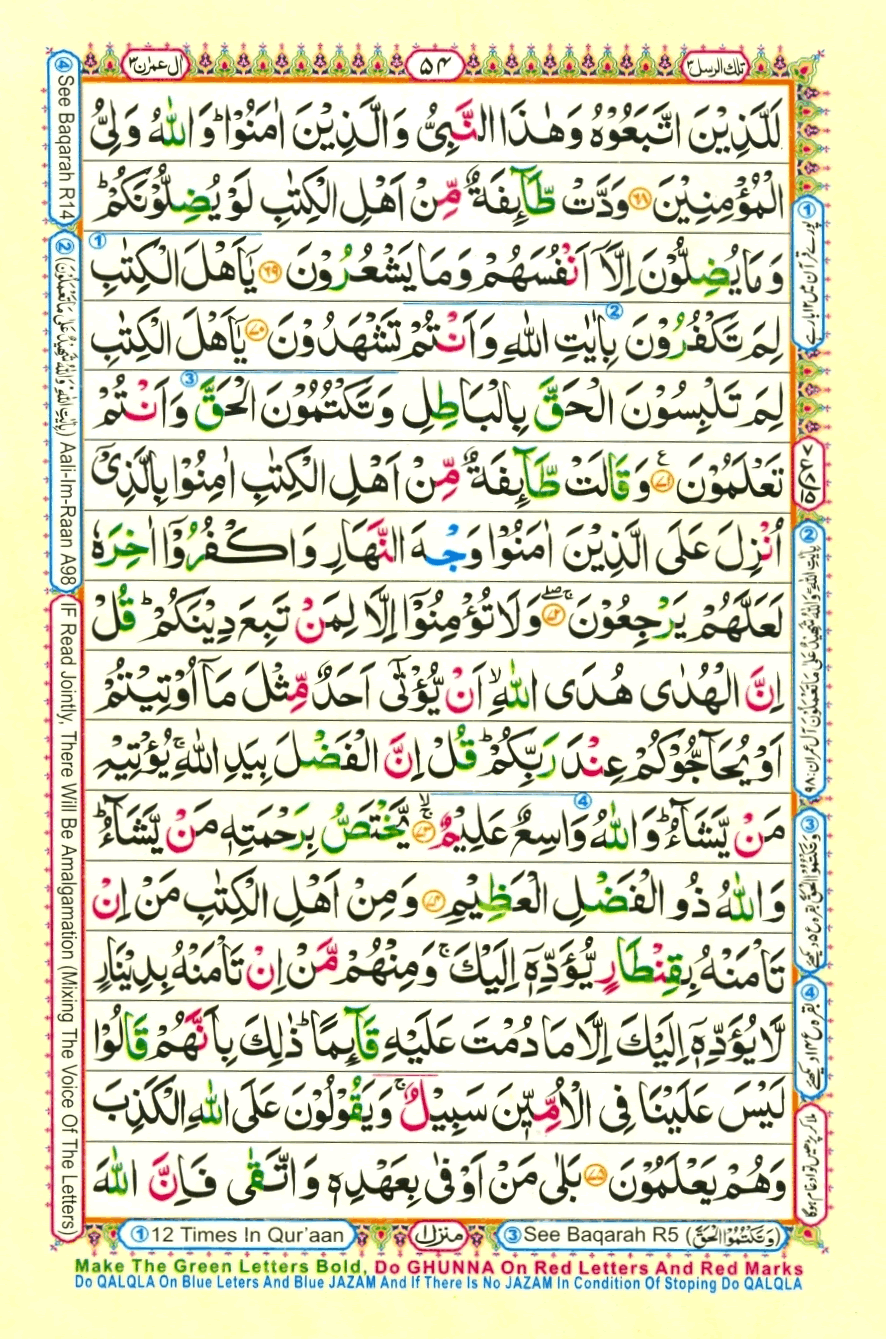 تلك الرسل ۳
۵۴
ال عمرٰن ۳
لَلَّذِيْنَ اتَّبَعُوْهُ وَهٰذَا النَّبِىُّ وَالَّذِيْنَ اٰمَنُوْا ؕ وَاللّٰهُ وَلِىُّ
الْمُؤْمِنِيْنَ ﴿۶۸﴾ وَدَّتْ طَّآئِفَةٌ مِّنْ اَهْلِ الْكِتٰبِ لَوْ يُضِلُّوْنَكُمْ ؕ
وَمَا يُضِلُّوْنَ اِلَّاۤ اَنْفُسَهُمْ وَمَا يَشْعُرُوْنَ ﴿۶۹﴾ يٰۤاَهْلَ الْكِتٰبِ
لِمَ تَكْفُرُوْنَ بِاٰيٰتِ اللّٰهِ وَاَنْتُمْ تَشْهَدُوْنَ ﴿۷۰﴾ يٰۤاَهْلَ الْكِتٰبِ
لِمَ تَلْبِسُوْنَ الْحَقَّ بِالْبَاطِلِ وَتَكْتُمُوْنَ الْحَقَّ وَاَنْتُمْ
تَعْلَمُوْنَ ﴿۷۱﴾ وَقَالَتْ طَّآئِفَةٌ مِّنْ اَهْلِ الْكِتٰبِ اٰمِنُوْا بِالَّذِىْۤ
اُنْزِلَ عَلَى الَّذِيْنَ اٰمَنُوْا وَجْهَ النَّهَارِ وَاكْفُرُوْۤا اٰخِرَهٗ
لَعَلَّهُمْ يَرْجِعُوْنَ ﴿۷۲﴾ وَلَا تُؤْمِنُوْۤا اِلَّا لِمَنْ تَبِعَ دِيْنَكُمْ ؕ قُلْ
اِنَّ الْهُدٰى هُدَى اللّٰهِ ۙ اَنْ يُّؤْتٰٓى اَحَدٌ مِّثْلَ مَاۤ اُوْتِيْتُمْ
اَوْ يُحَآجُّوْكُمْ عِنْدَ رَبِّكُمْ ؕ قُلْ اِنَّ الْفَضْلَ بِيَدِ اللّٰهِ ۚ يُؤْتِيْهِ
مَنْ يَّشَآءُ ؕ وَاللّٰهُ وَاسِعٌ عَلِيْمٌ ﴿۷۳﴾ يَّخْتَصُّ بِرَحْمَتِهٖ مَنْ يَّشَآءُ ؕ
وَاللّٰهُ ذُو الْفَضْلِ الْعَظِيْمِ ﴿۷۴﴾ وَمِنْ اَهْلِ الْكِتٰبِ مَنْ اِنْ
تَاْمَنْهُ بِقِنْطَارٍ يُّؤَدِّهٖۤ اِلَيْكَ ۚ وَمِنْهُمْ مَّنْ اِنْ تَاْمَنْهُ بِدِيْنَارٍ
لَّا يُؤَدِّهٖۤ اِلَيْكَ اِلَّا مَا دُمْتَ عَلَيْهِ قَآئِمًا ؕ ذٰلِكَ بِاَنَّهُمْ قَالُوْا
لَيْسَ عَلَيْنَا فِى الْاُمِّيّٖنَ سَبِيْلٌ ۚ وَيَقُوْلُوْنَ عَلَى اللّٰهِ الْكَذِبَ
وَهُمْ يَعْلَمُوْنَ ﴿۷۵﴾ بَلٰى مَنْ اَوْفٰى بِعَهْدِهٖ وَاتَّقٰى فَاِنَّ اللّٰهَ
① پورے قرآن میں ۱۲ بار ہے
② بِاٰيٰتِ اللّٰهِ وَاللّٰهُ شَهِيْدٌ عَلٰى مَا تَعْمَلُوْنَ آل عمران: ۹۸
③ وَتَكْتُمُوا الْحَقَّ بقرہ ع ۵ دیکھئے
④ بقرہ ع ۱۴ دیکھئے
ملا کر پڑھیں تو ادغام ہوگا
④ See Baqarah R14
② (بِاٰيٰتِ اللّٰهِ وَاللّٰهُ شَهِيْدٌ عَلٰى مَا تَعْمَلُوْنَ) Aali-Im-Raan A98
IF Read Jointly, There Will Be Amalgamation (Mixing The Voice Of The Letters)
① 12 Times In Qur'aan
منزل
③ See Baqarah R5 (وَتَكْتُمُوا الْحَقَّ)
Make The Green Letters Bold, Do GHUNNA On Red Letters And Red Marks
Do QALQLA On Blue Leters And Blue JAZAM And If There Is No JAZAM In Condition Of Stoping Do QALQLA